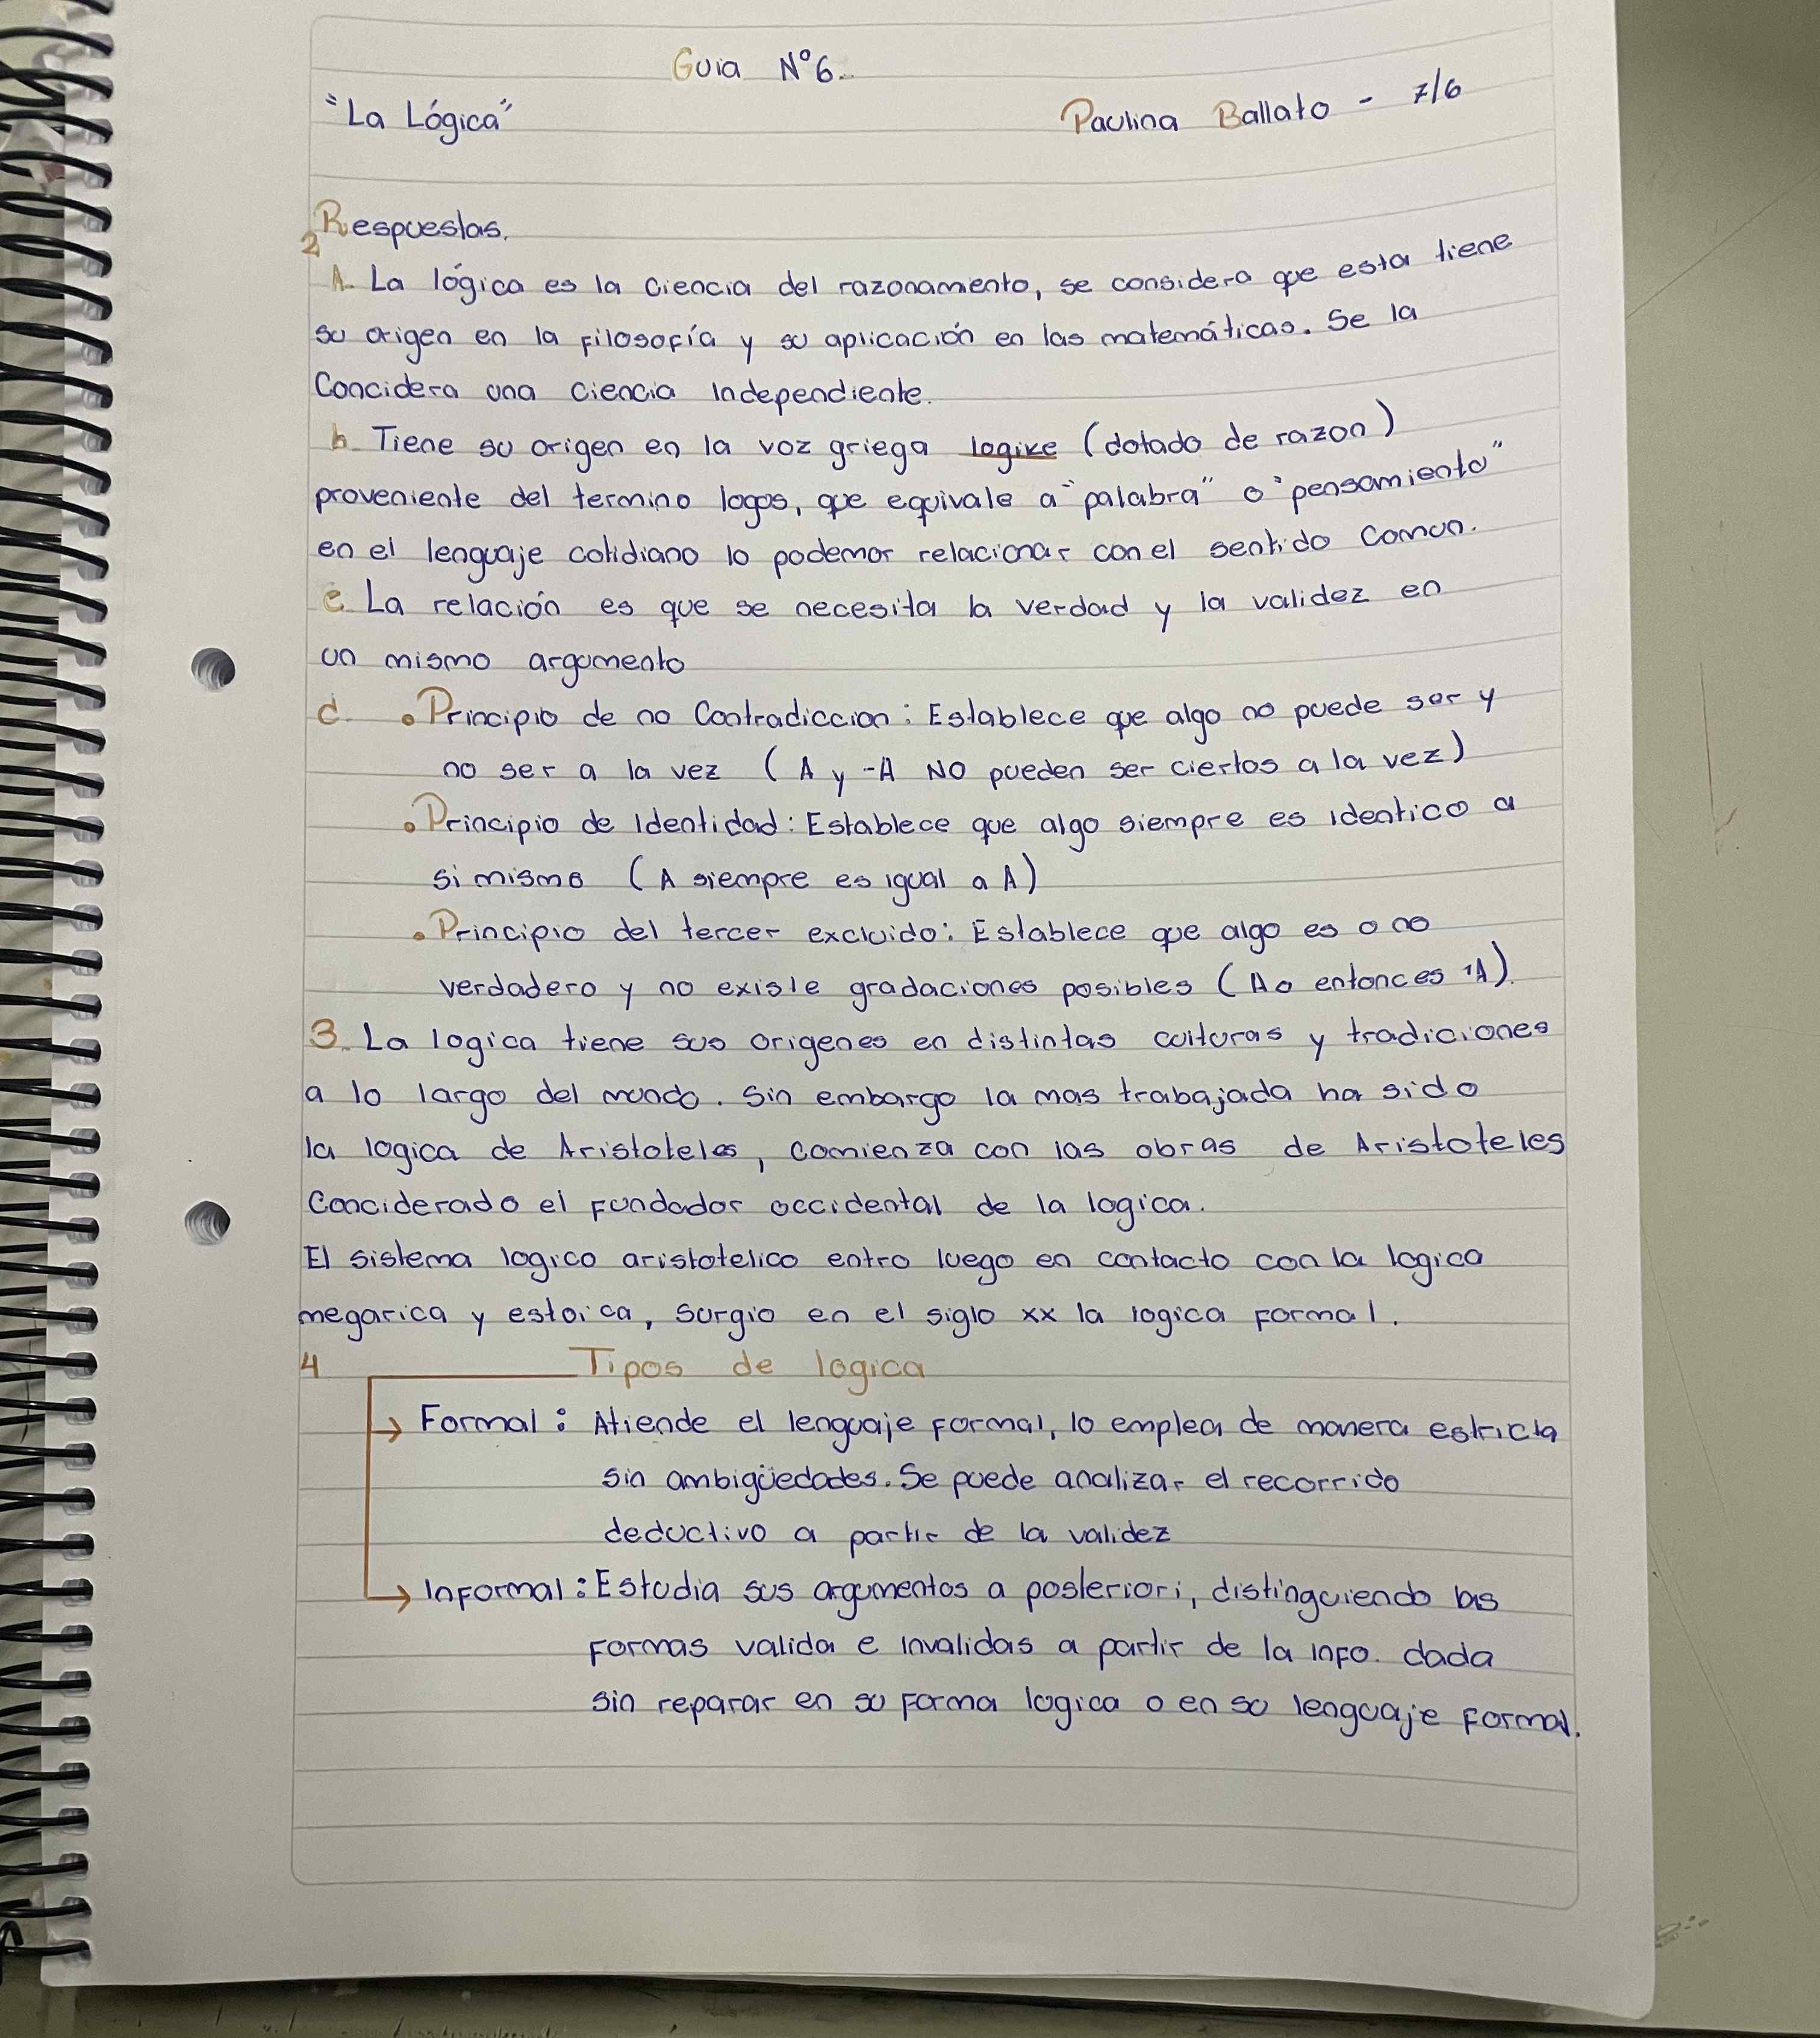 Guia Nº6.
"La Lógica"
Paulina Ballato - 7/6
Respuestas.
2
A. La lógica es la ciencia del razonamiento, se considera que esta tiene
su origen en la filosofía y su aplicación en las matemáticas. Se la
Concidera una ciencia independiente.
b. Tiene su origen en la voz griega logike (dotado de razon)
proveniente del termino logos, que equivale a "palabra" o "pensamiento"
en el lenguaje cotidiano lo podemor relacionar con el sentido comun.
c. La relación es que se necesita la verdad y la validez en
un mismo argumento
d. • Principio de no Contradiccion: Establece que algo no puede ser y
no ser a la vez (A y -A NO pueden ser ciertos a la vez)
• Principio de Identidad: Establece que algo siempre es identico a
si mismo (A siempre es igual a A)
• Principio del tercer excluido: Establece que algo es o no
verdadero y no existe gradaciones posibles (A o entonces ¬A).
3. La logica tiene sus origenes en distintas culturas y tradiciones
a lo largo del mundo. Sin embargo la mas trabajada ha sido
la logica de Aristoteles, comienza con las obras de Aristoteles
Conciderado el fundador occidental de la logica.
El sistema logico aristotelico entro luego en contacto con la logica
megarica y estoica, surgio en el siglo xx la logica formal.
4 Tipos de logica
→ Formal: Atiende el lenguaje formal, lo emplea de manera estricta
sin ambigüedades. Se puede analizar el recorrido
deductivo a partir de la validez
→ Informal: Estudia sus argumentos a posteriori, distinguiendo las
formas valida e invalidas a partir de la info. dada
sin reparar en su forma logica o en su lenguaje formal.